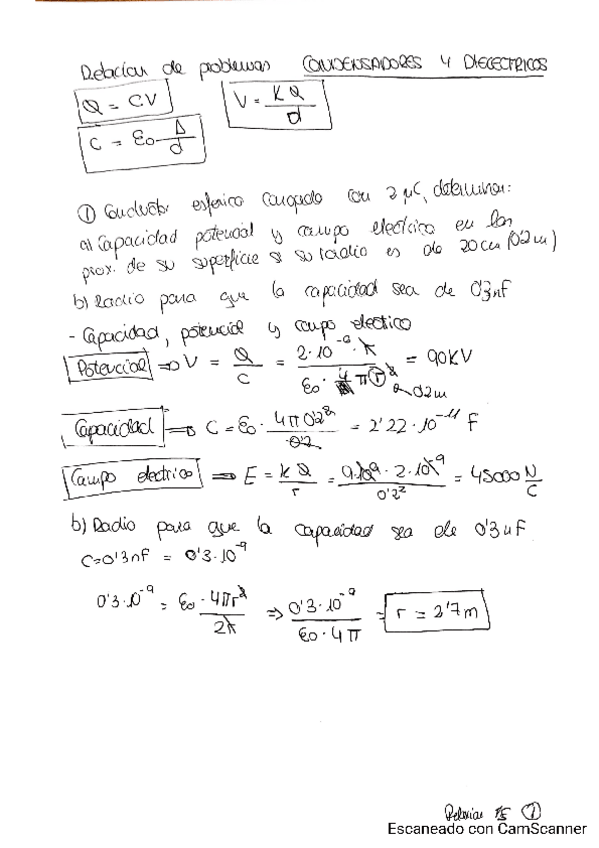 Relación de problemas CONDENSADORES Y DIELECTRICOS
Q = CV
V = KQ / d
C = εo A / d
① Conductor esferico cargado con 2 μC, determinar:
a) Capacidad potencial y campo electrico en las
prox. de su superficie si su radio es de 20cm (0'2m)
b) Radio para que la capacidad sea de 0'3nF
- Capacidad, potencial y campo electrico
Potencial ⇒ V = Q / C = 2·10⁻⁶ · r / εo · 4 π r² = 90KV
0'2m
Capacidad ⇒ C = εo · 4π 0'2² / 0'2 = 2'22 · 10⁻¹¹ F
Campo electrico ⇒ E = KQ / r = 9·10⁹ · 2·10⁻⁹ / 0'2² = 45000 N/C
b) Radio para que la capacidad sea de 0'3nF
C=0'3nF = 0'3·10⁻⁹
0'3·10⁻⁹ = εo · 4πr² / r ⇒ 0'3·10⁻⁹ / εo · 4π = r = 2'7m
①
Escaneado con CamScanner